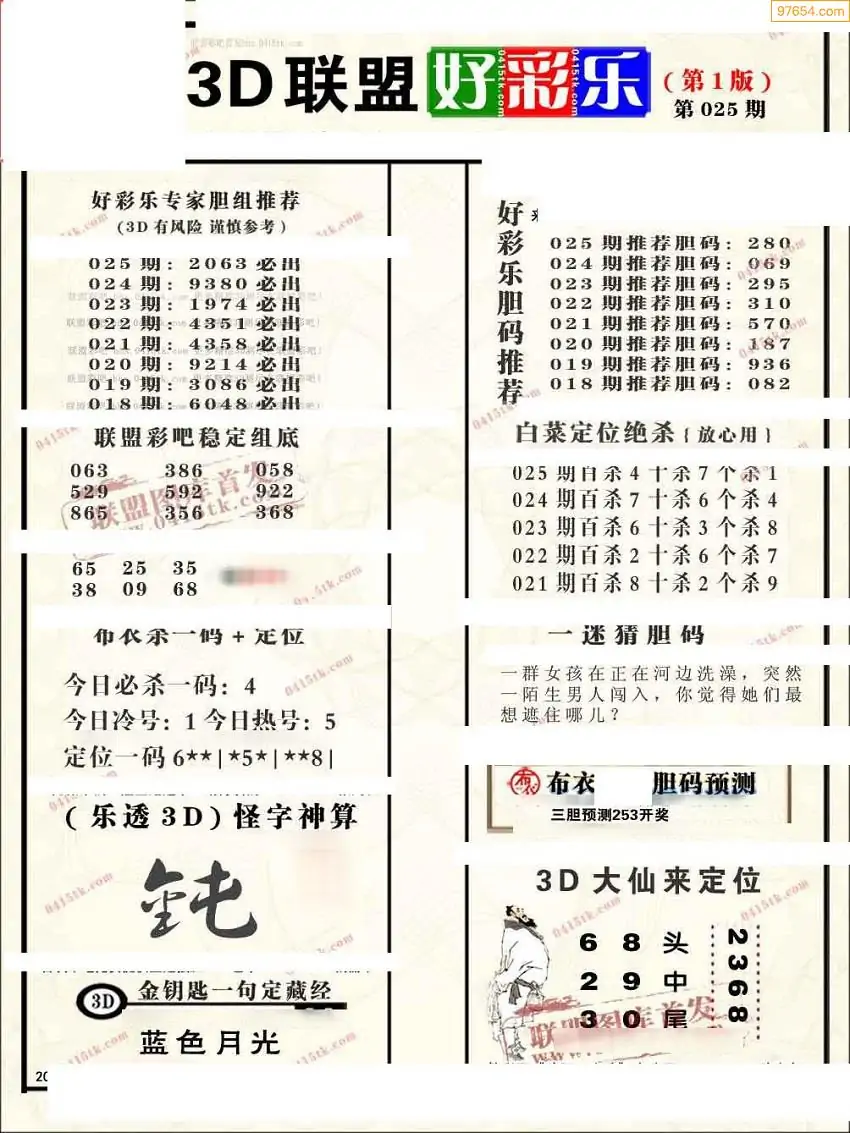 97654.com
3D联盟好彩乐(第1版)
第025期
好彩乐专家胆组推荐
(3D有风险 谨慎参考)
025期: 2063必出
024期: 9380必出
023期: 1974必出
022期: 4351必出
021期: 4358必出
020期: 9214必出
019期: 3086必出
018期: 6048必出
联盟彩吧稳定组底
063 386 058
529 592 922
865 356 368
65 25 35
38 09 68
布衣杀一码+定位
今日必杀一码: 4
今日冷号: 1 今日热号: 5
定位一码 6**|*5*|**8|
(乐透3D)怪字神算
鈍
3D 金钥匙一句定藏经
蓝色月光
好彩乐胆码推荐
025期推荐胆码: 280
024期推荐胆码: 069
023期推荐胆码: 295
022期推荐胆码: 310
021期推荐胆码: 570
020期推荐胆码: 187
019期推荐胆码: 936
018期推荐胆码: 082
白菜定位绝杀{放心用}
025期百杀4十杀7个杀1
024期百杀7十杀6个杀4
023期百杀6十杀3个杀8
022期百杀2十杀6个杀7
021期百杀8十杀2个杀9
一迷猜胆码
一群女孩在正在河边洗澡，突然
一陌生男人闯入，你觉得她们最
想遮住哪儿？
布衣 胆码预测
三胆预测253开奖
3D大仙来定位
6 8 头
2 9 中
3 0 尾
2368
联盟图库首发
0415tk.com